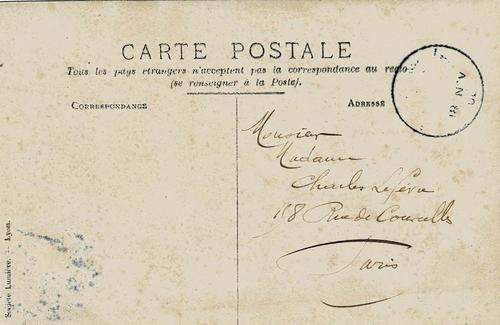 CARTE POSTALE
Tous les pays étrangers n'acceptent pas la correspondance au recto
(se renseigner à la Poste).
CORRESPONDANCE
ADRESSE
Monsieur
Madame
Charles Lefèvre
158 Rue de Courcelles
Paris
Société Lumière. — Lyon.